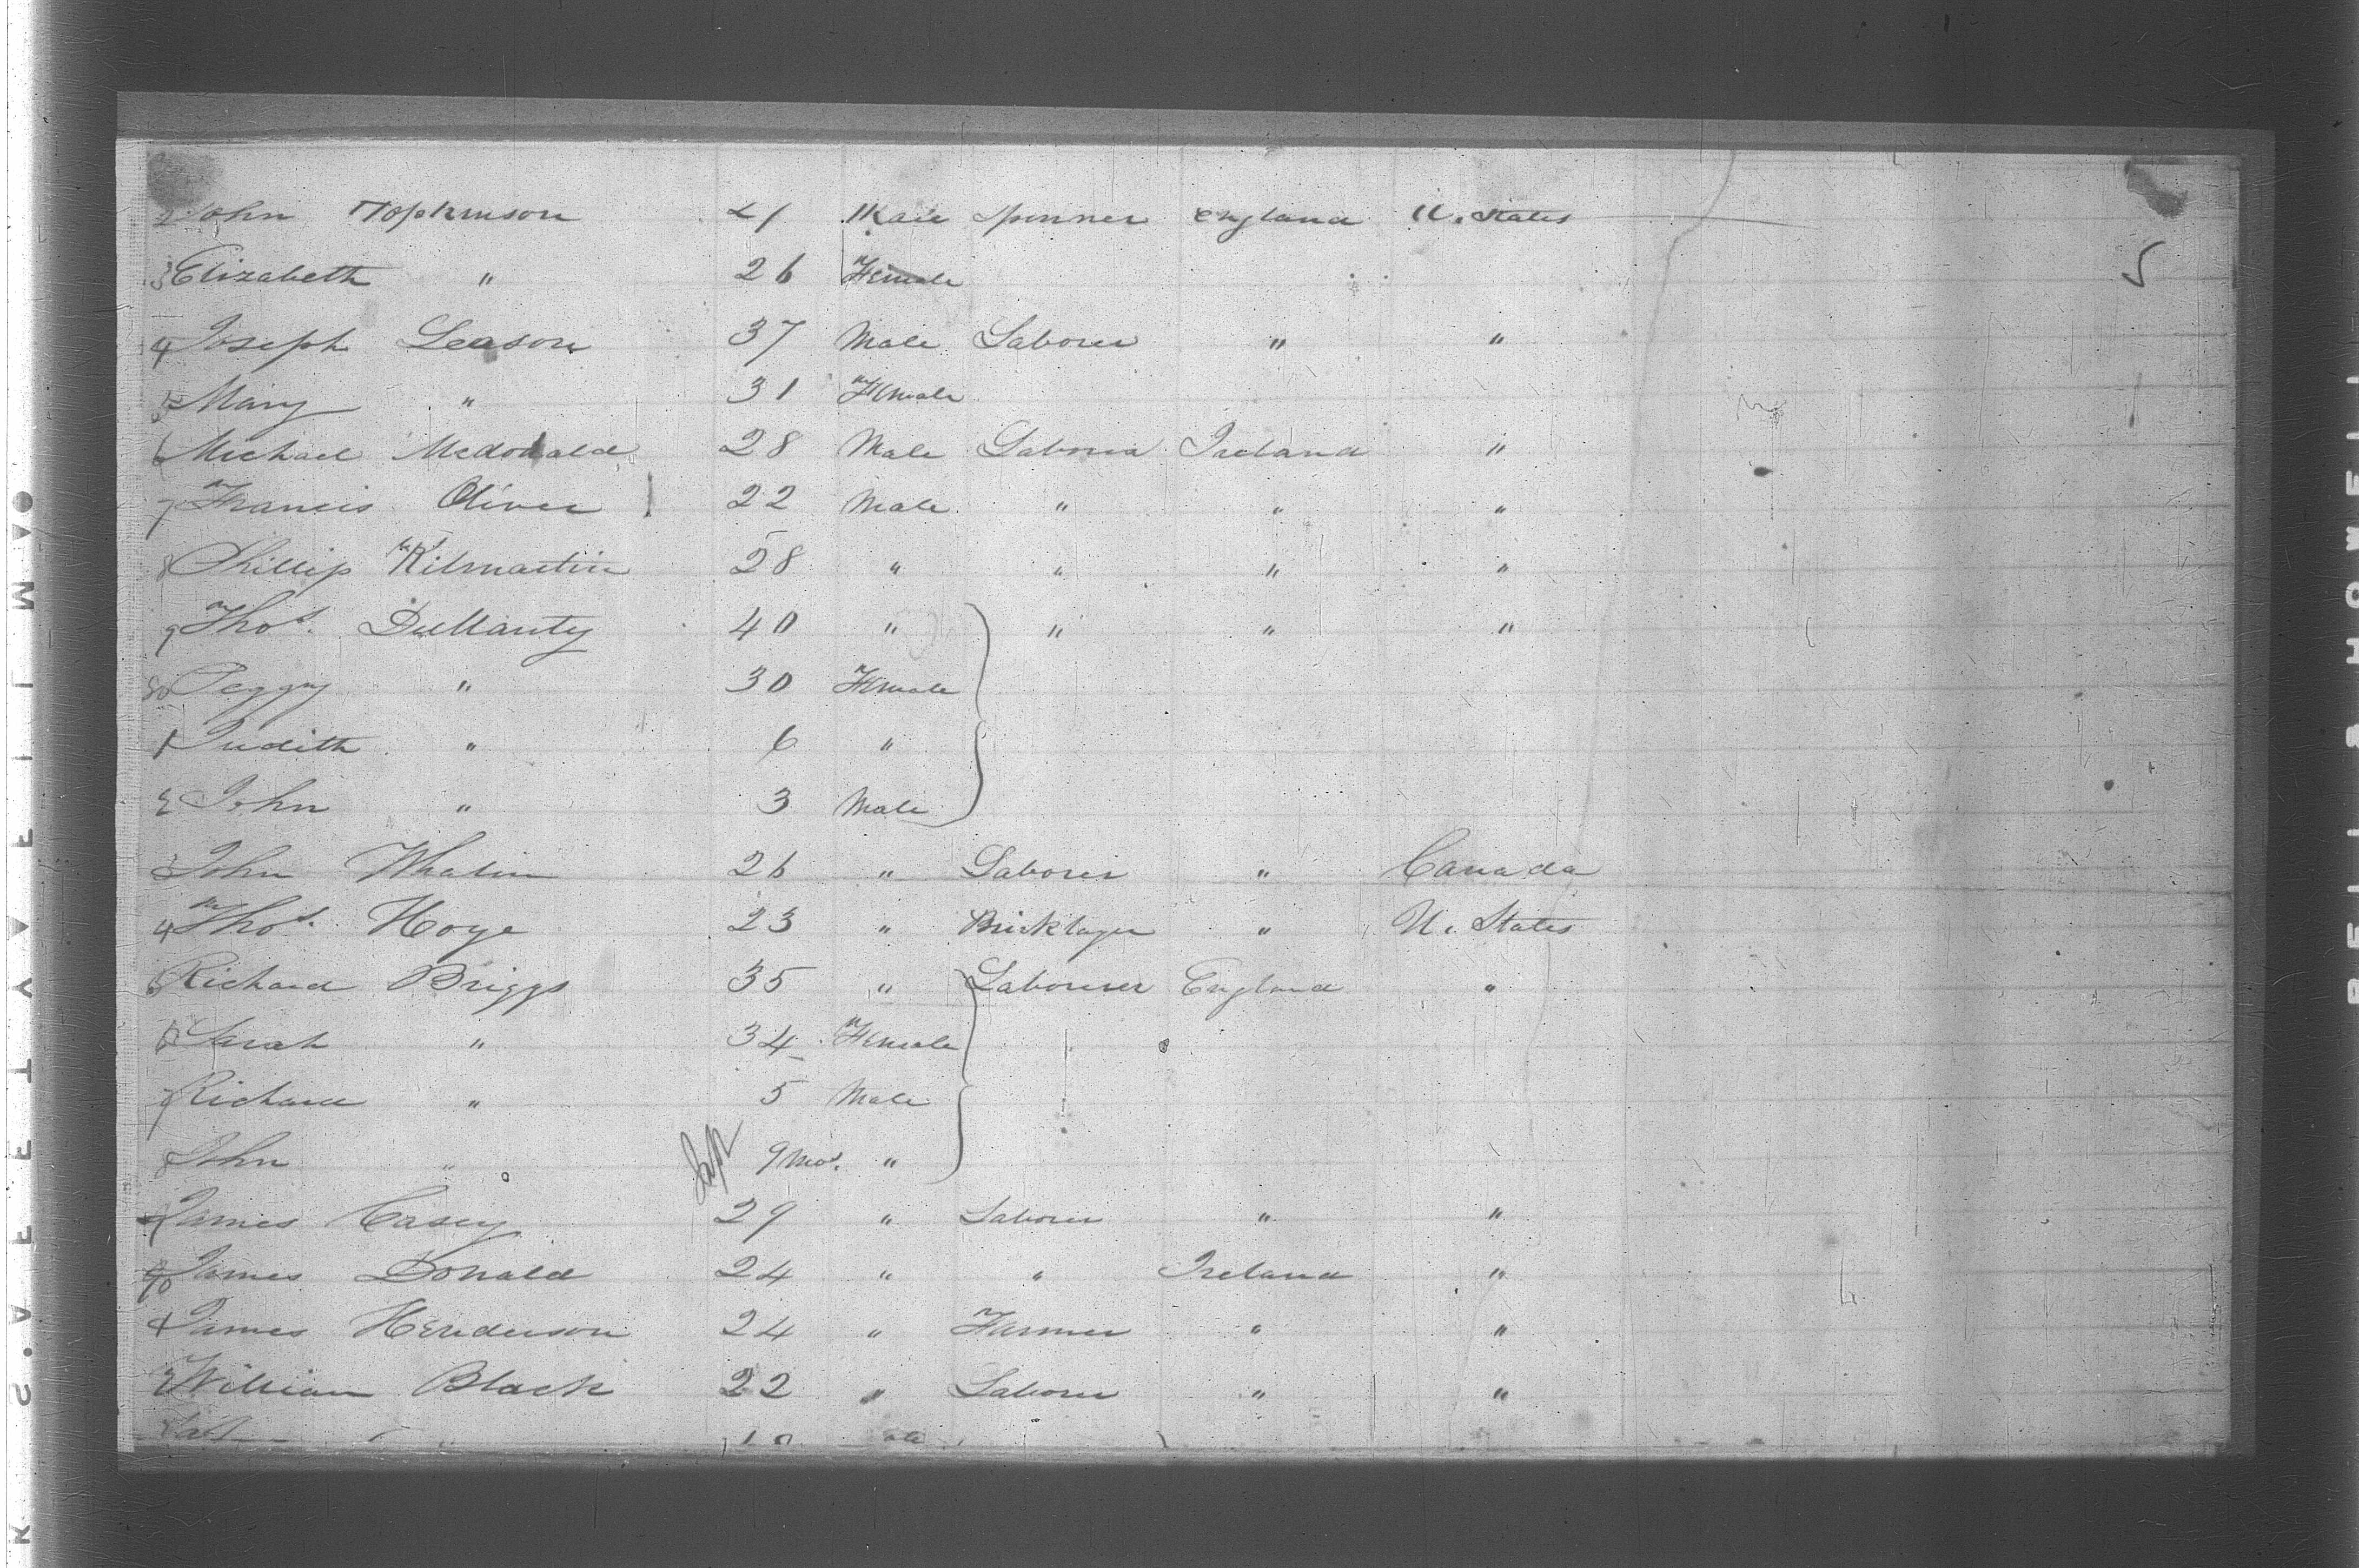 2 John Hopkinson 21 Male Spinner England U. States
3 Elizabeth " 26 Female
5
4 Joseph Leason 37 Male Laborer " "
5 Mary " 31 Female
6 Michael McDonald 28 Male Laborer Ireland "
7 Francis Oliver 22 Male " " "
8 Phillip Kilmartin 28 " " " "
9 Thos. 40 " " " "
80 Peggy " 30 Female
1 Judith " 6 "
2 John " 3 Male
3 John Whalin 26 " Laborer " Canada
4 Thos. Hoye 23 " Bricklayer " U. States
5 Richard Briggs 35 " Labourer England "
6 Sarah " 34 Female
7 Richard " 5 Male
8 John " 9 Mos. "
9 James Casey 29 " Laborer " "
90 James Donald 24 " " Ireland "
1 James Henderson 24 " Farmer " "
2 William Black 22 " Laborer " "
BELL & HOWELL